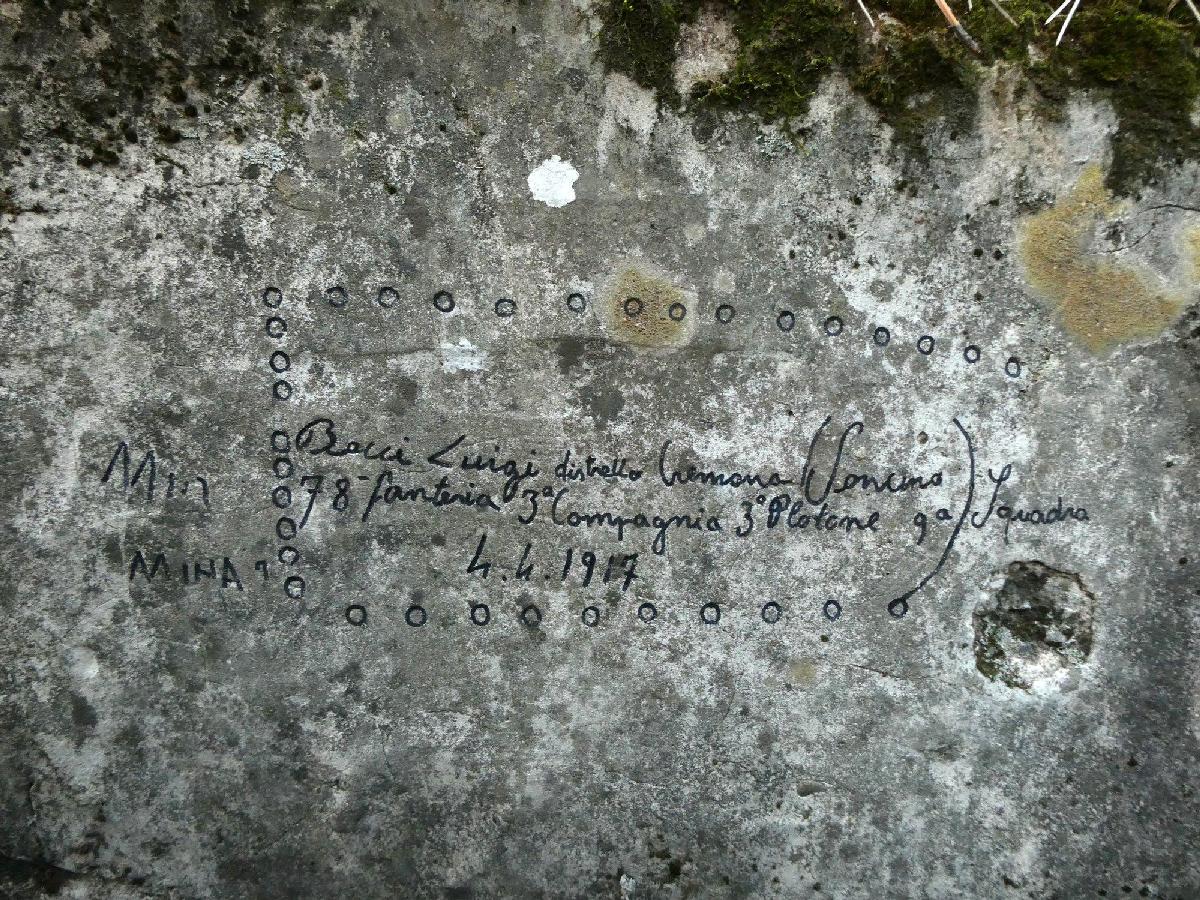 Becci Luigi distretto Cremona (Soncino)
78 fanteria 3ª Compagnia 3º Plotone 9ª Squadra
4.4.1917
Min
MINA